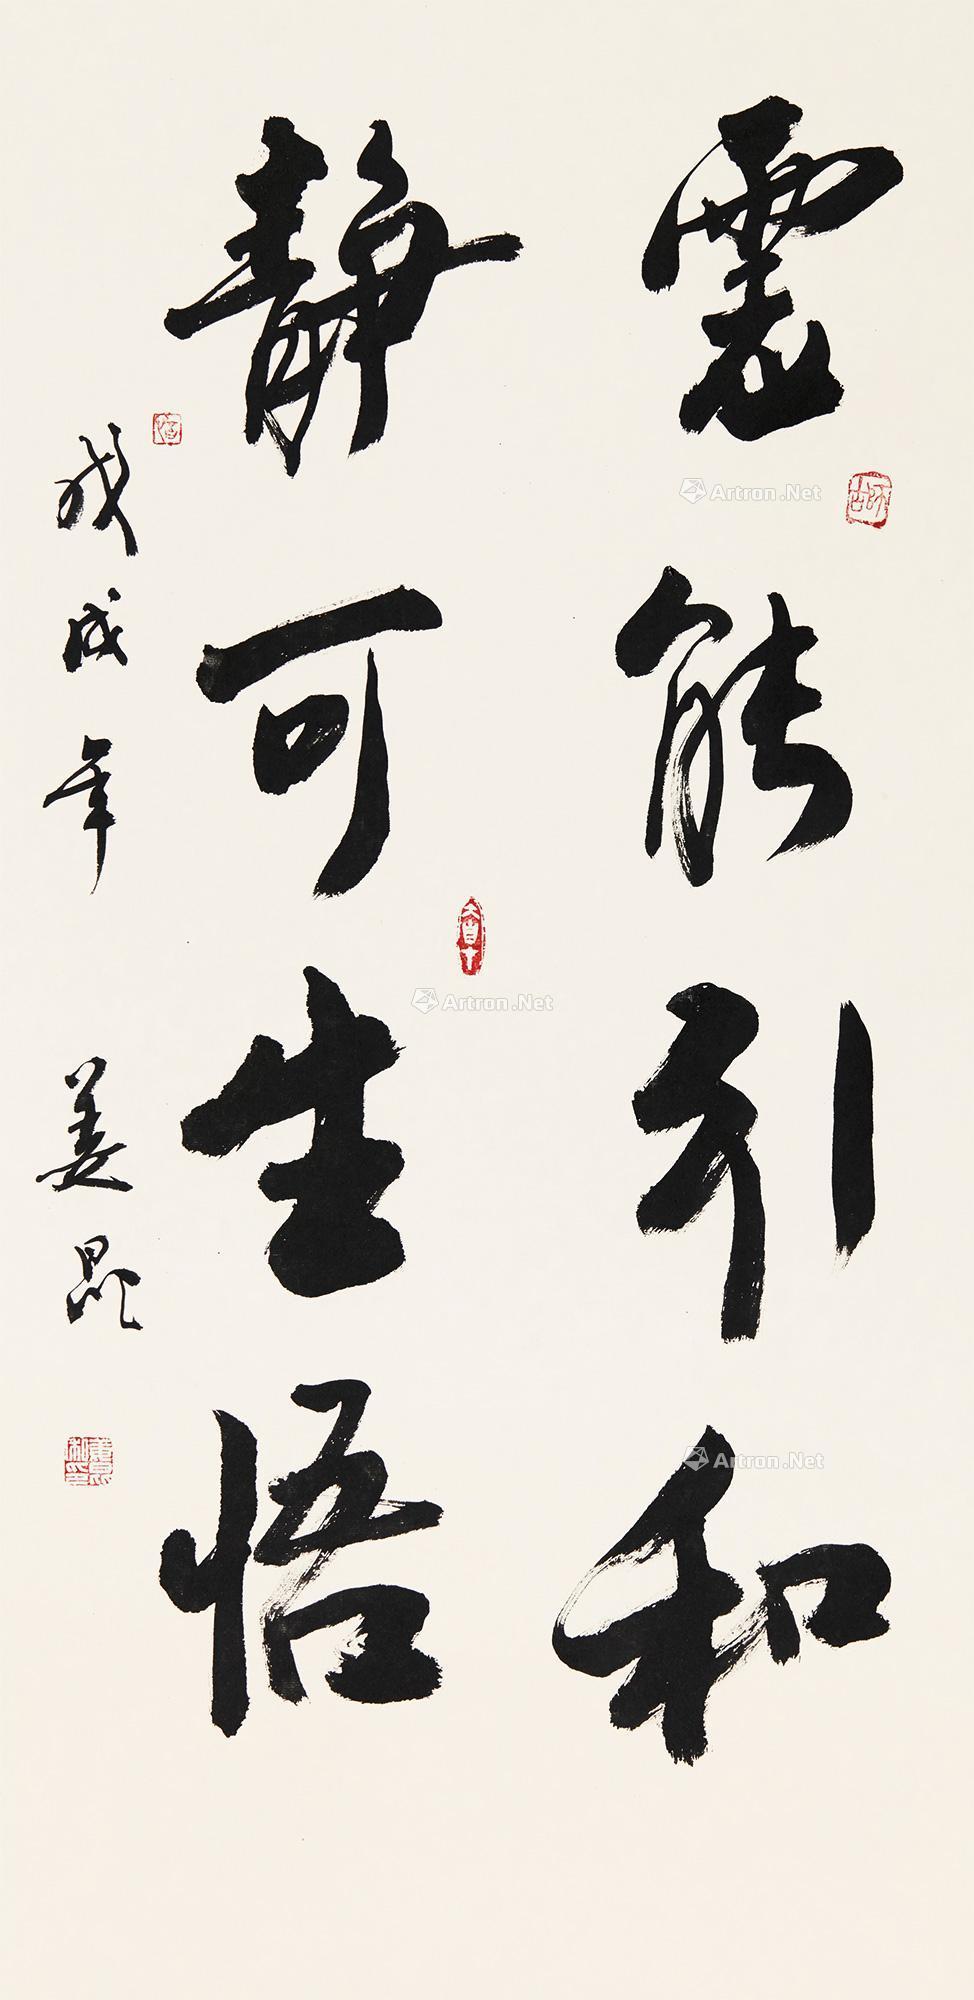 虛能引和
靜可生悟
戊戌年 姜昆
Artron.Net
Artron.Net
Artron.Net